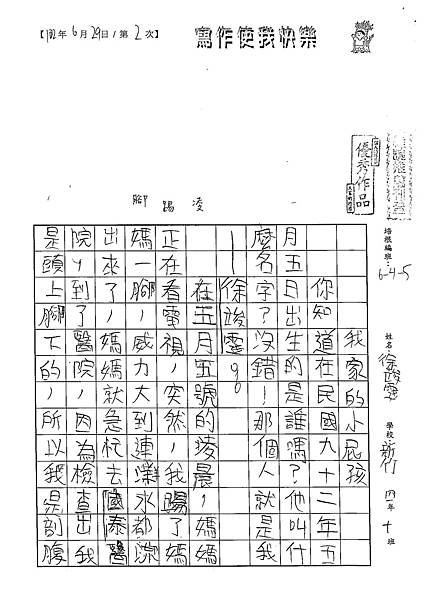 【102年6月29日/第2次】
寫作使我快樂
優秀作品
培根編班：6-4-5
姓名 徐竣霆
學校 四年十班
凌
踢
腳
我家的小屁孩
你知道在民國九十二年五
月五日出生的是誰嗎？他叫什
麼名字？沒錯！那個人就是我
——徐竣霆。
在五月五號的陵晨，媽媽
正在看電視，突然，我踢了媽
媽一腳，威力大到連水都流
出來了，媽媽就急忙去國泰醫
院，到了醫院，因為檢查出我
是頭上腳下的，所以我是剖腹